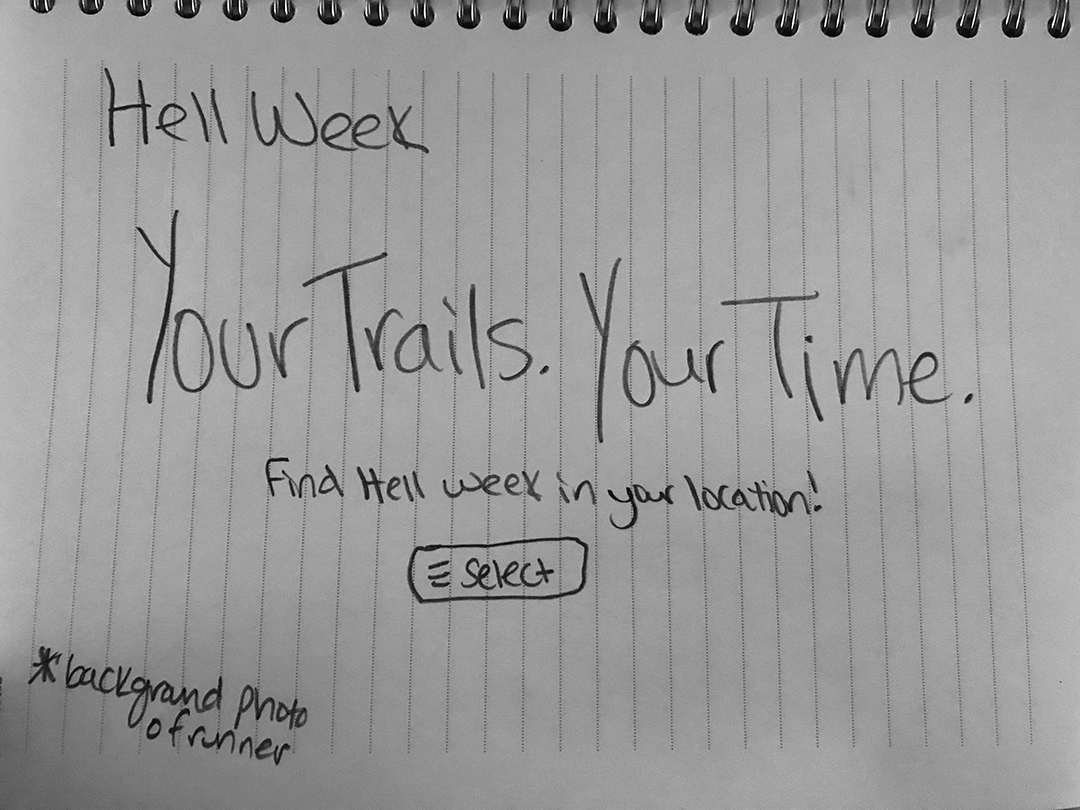 Hell Week
Your Trails. Your Time.
Find Hell week in your location!
Select
*background photo
of runner